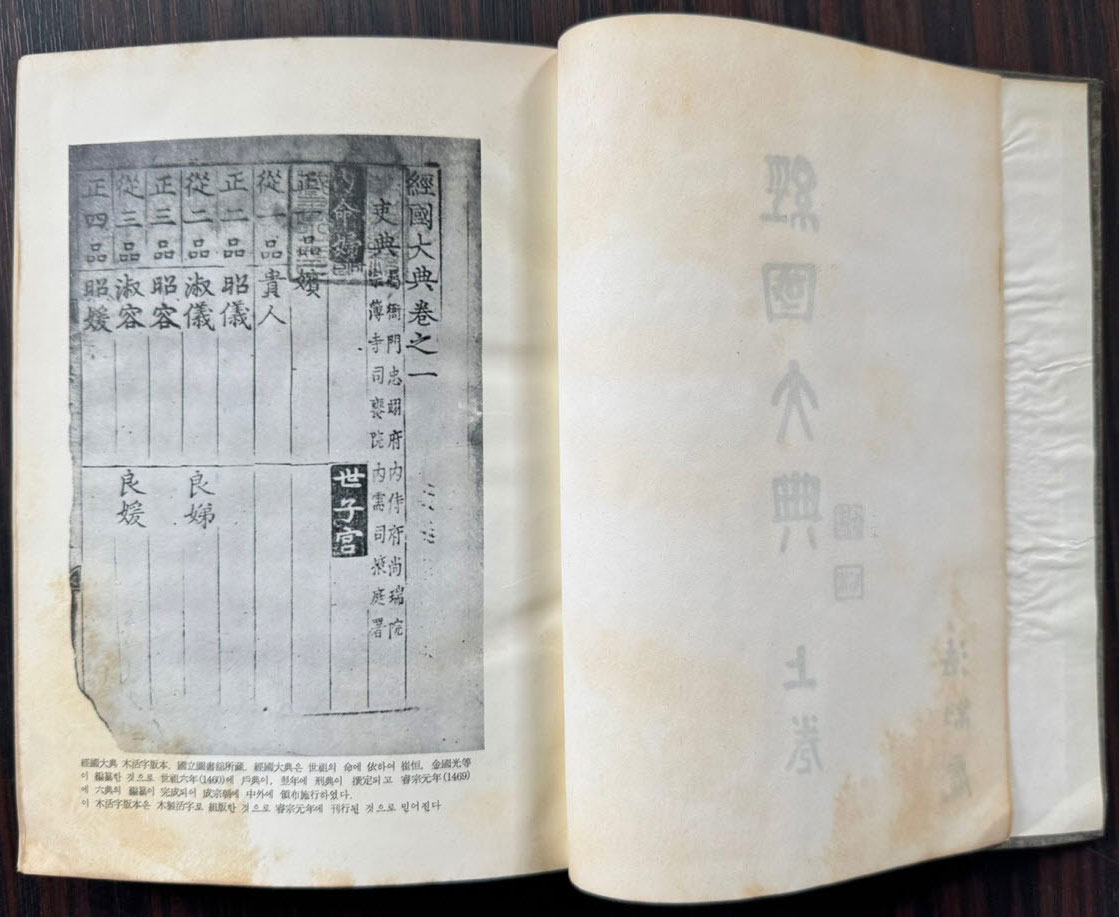 經國大典卷之一
吏典
屬衙門忠翊府內侍府尙瑞院
宗簿寺司饔院內需司掖庭署
內命婦
世子宮
正一品嬪
從一品貴人
正二品昭儀
從二品淑儀
良娣
正三品昭容
從三品淑容
良媛
正四品昭媛
經國大典 木活字版本. 國立圖書館所藏. 經國大典은 世祖의 命에 依하여 崔恒. 金國光等
이 編纂한 것으로 世祖六年(1460)에 戶典이, 翌年에 刑典이 撰定되고 睿宗元年(1469)
에 六典의 編纂이 完成되어 成宗朝에 中外에 頒布施行하였다.
이 木活字版本은 木製活字로 組版한 것으로 睿宗元年에 刊行된 것으로 믿어진다
經國大典
上卷
法制處